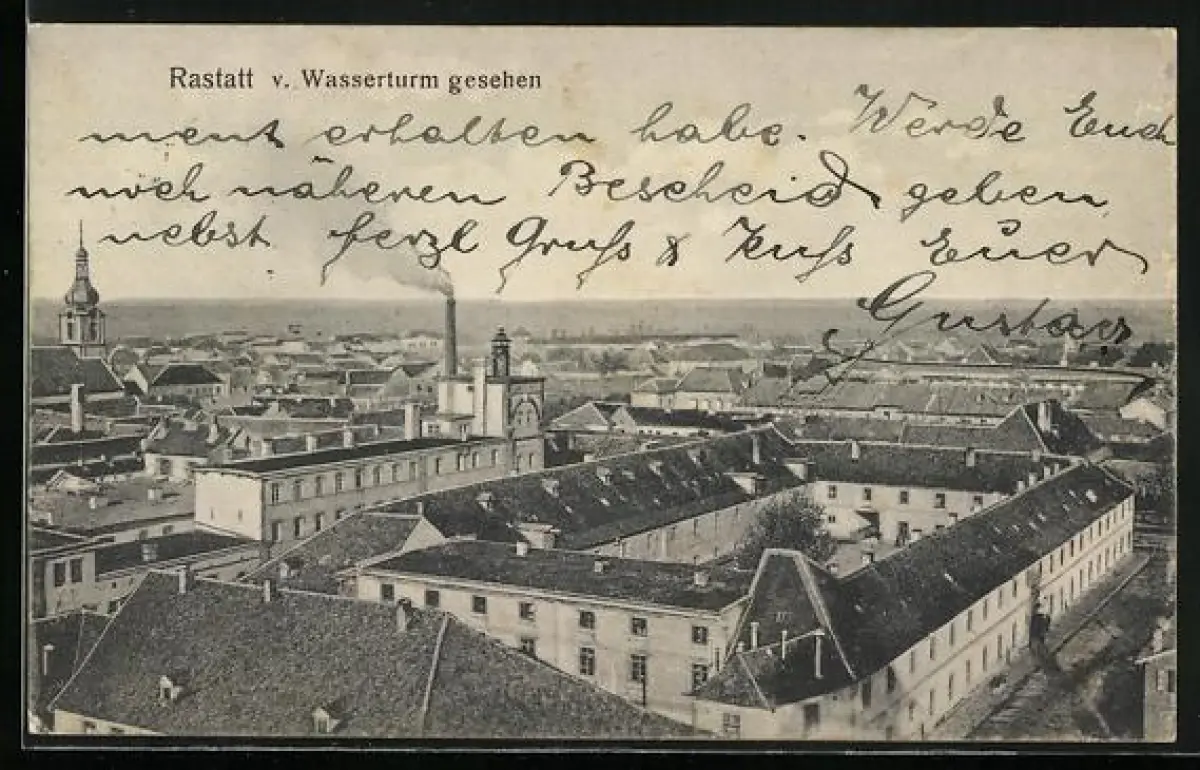 Rastatt v. Wasserturm gesehen
ment erhalten habe. Werde Euch
noch näheren Bescheid geben
nebst herzl Gruß & Kuß Euer
Gustav